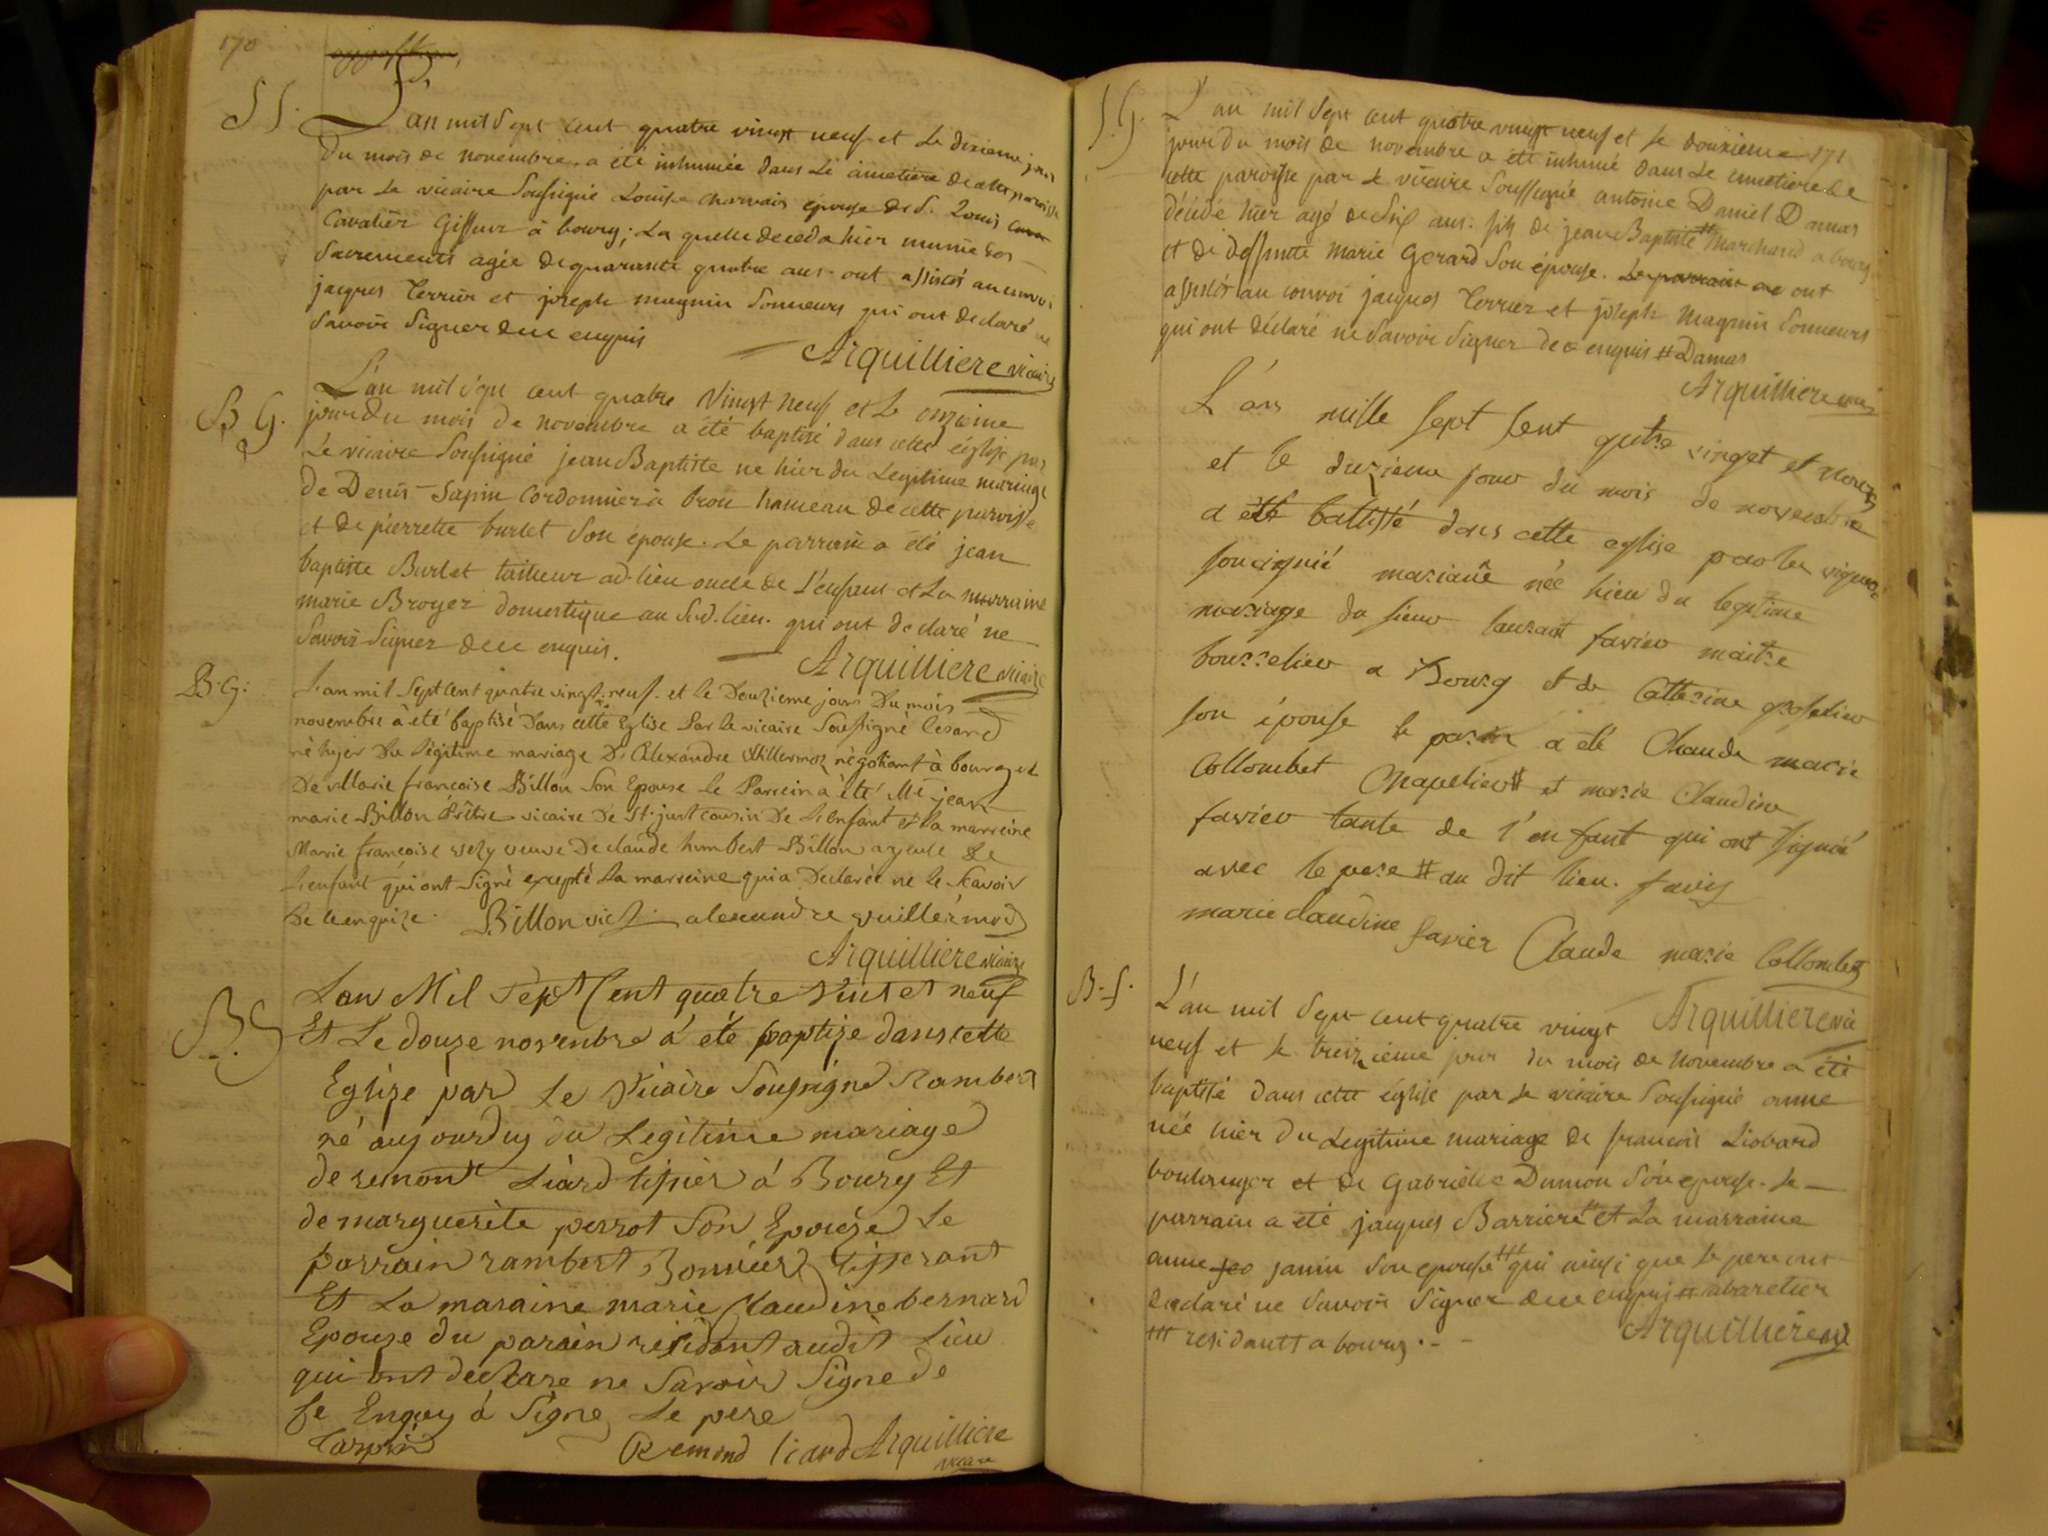 170
S S.
L'an mil Sept cent quatre vingt neuf et Le dixieme jour
du mois de novembre a été inhumée dans Le cimetiere de cette paroisse
par Le vicaire Soussigné Louise charvais épouse de S. Louis
Cavalier Giffeur à bourg; La quelle deceda hier munie des
Sacrements agée de quarante quatre ans. ont assistés au convoi
jacques Terrier et joseph magnin Sonneurs qui ont declaré ne
Savoir Signer de ce enquis
Arquilliere vicaire
B G.
L'an mil sept cent quatre vingt neuf et Le onzieme
jour du mois de novembre a été baptisé dans cette église par
Le vicaire Soussigné jean Baptiste ne hier du Legitime mariage
de Denis Sapin Cordonnier à brou hameau de cette paroisse
et de pierrette burlet Son épouse. Le parrain a été jean
baptiste Burlet tailleur ad. lieu oncle de L'enfant et La marraine
marie Broyer domestique au Sud. lieu. qui ont declaré ne
Savoir Signer de ce enquis.
Arquilliere vicaire
B. G.
L'an mil Sept cent quatre vingt-neuf. et le Douzieme jour Du mois
novembre à été baptisé Dans cette Eglise Par le vicaire Soussigné Cesard
né hyer Du légitime mariage D'Alexandre Willermoz négotiant à bourg et
De Marie francoise Billon Son Epouse le Parrein a été Mr jean
marie Billon Prêtre vicaire De St. just cousin De L'enfant et la marreine
Marie francoise veuve De claude humbert Billon ayeule De
L'enfant qui ont Signé excepté La marreine qui a Declarée ne le Scavoir
De ce enquise. Billon vic. alexandre vuillermoz
Arquilliere vicaire
B. S
L'an Mil sept Cent quatre vint et neuf
Et Le douze novembre a été baptize dans cette
Eglize par Le Vicaire Soussigné Rambert
né aujourduy du Legitime mariage
de remont Liard tissier à Bourg Et
de marguerite perrot Son Epouze Le
parrain rambert Bonnier tisserant
Et La maraine marie Claudine bernard
Epouze du parain residant audit Lieu
qui ont declare ne Savoir Signe de
ce Enquy à Signe Le pere
Remond liard Arquilliere
vicaire
S. G.
L'an mil Sept cent quatre vingt neuf et le douxieme 171
jour du mois de novembre a été inhumé dans Le cimetiere de
cette paroisse par Le vicaire Soussigné antoine Daniel Damas
décédé hier agé de Six ans. fils de jean Baptiste # marchand a bourg
et de deffunte Marie Gerard Son épouse. Le parrain a ont
assistés au convoi jacques Terrier et joseph Magnin Sonneurs
qui ont déclaré ne Savoir Signer de ce enquis # Damas
Arquilliere vic
L'an mille Sept Sent quatre vinget et neuf
et le duzieme jour du mois de novembre
a été battissé dans cette eglise par le
soucignié mariane née hieu du legitime
mariage du sieur laurant favier maitre
bourrelieu a Bourg et de Catterine
son épouse le parin a été Claude marie
Collombet Chapelieu # et marie Claudine
favieu tante de l'enfant qui ont Signié
avec le pere # au dit lieu. favier
marie claudine favier Claude marie Collombet
Arquilliere vic
B. S.
L'an mil Sept cent quatre vingt
neuf et le treizieme jour du mois de novembre a été
baptisé dans cette église par Le vicaire Soussigné anne
née hier du Legitime mariage de francois Liobard
boulanger et de Gabrielle Dumon Son epouse. Le
parrain a été jacques Barriere # et La marraine
anne janin Son epouse ### qui ainsi que Le pere ont
declaré ne Savoir Signer de ce enquis # cabaretier
### residants a bourg. -
Arquilliere vic